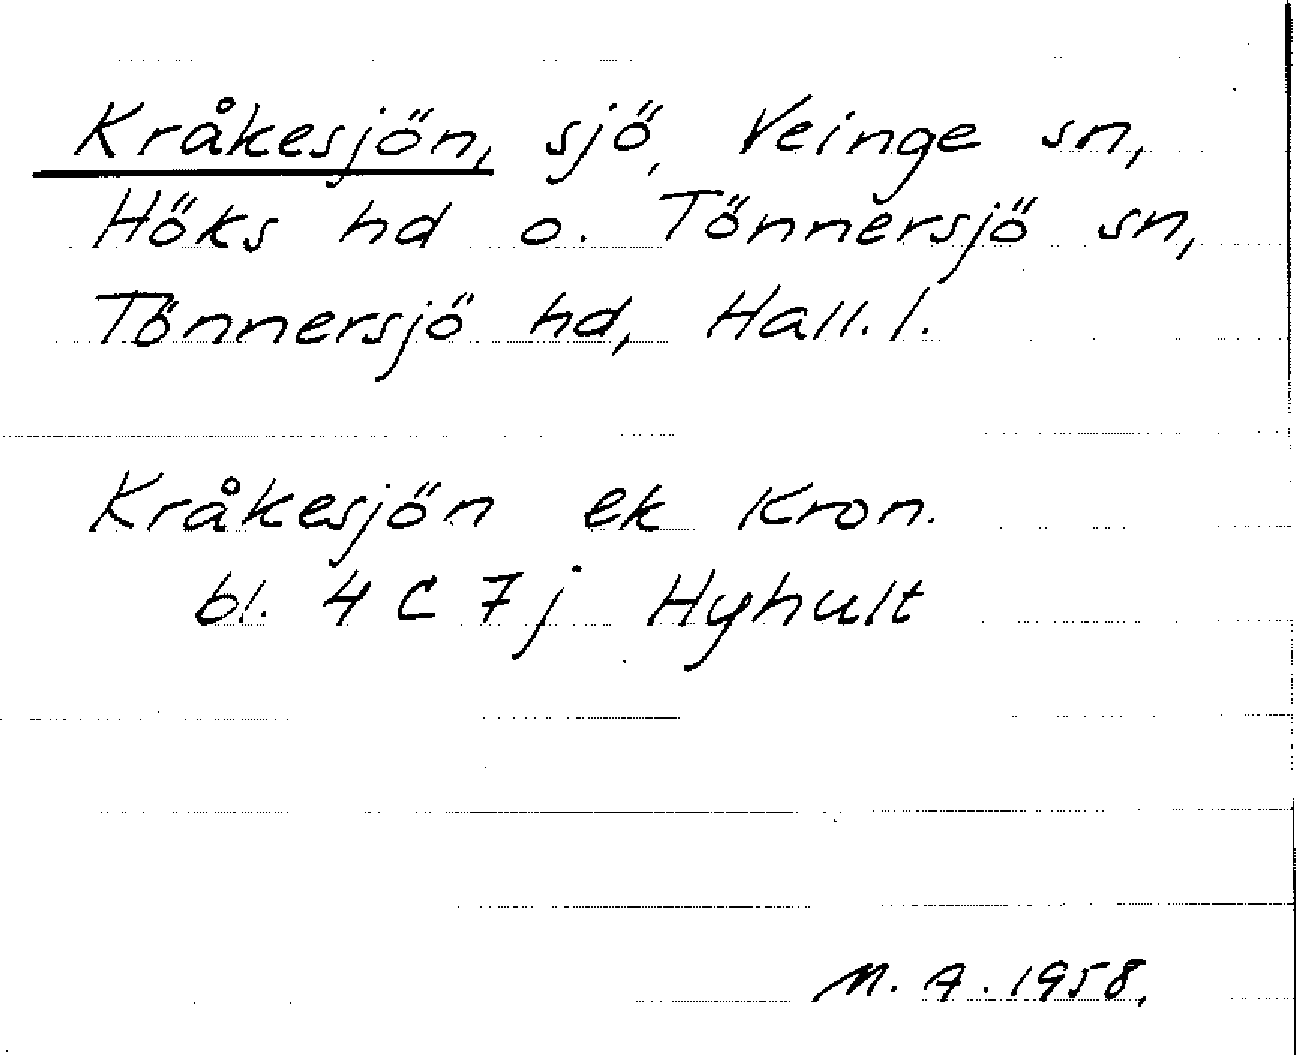 Kråkesjön, sjö, Veinge sn,
Höks hd o. Tönnersjö sn,
Tönnersjö hd, Hall. l.
Kråkesjön ek Kron.
bl. 4 C 7 j Hyhult
M. A. 1958.